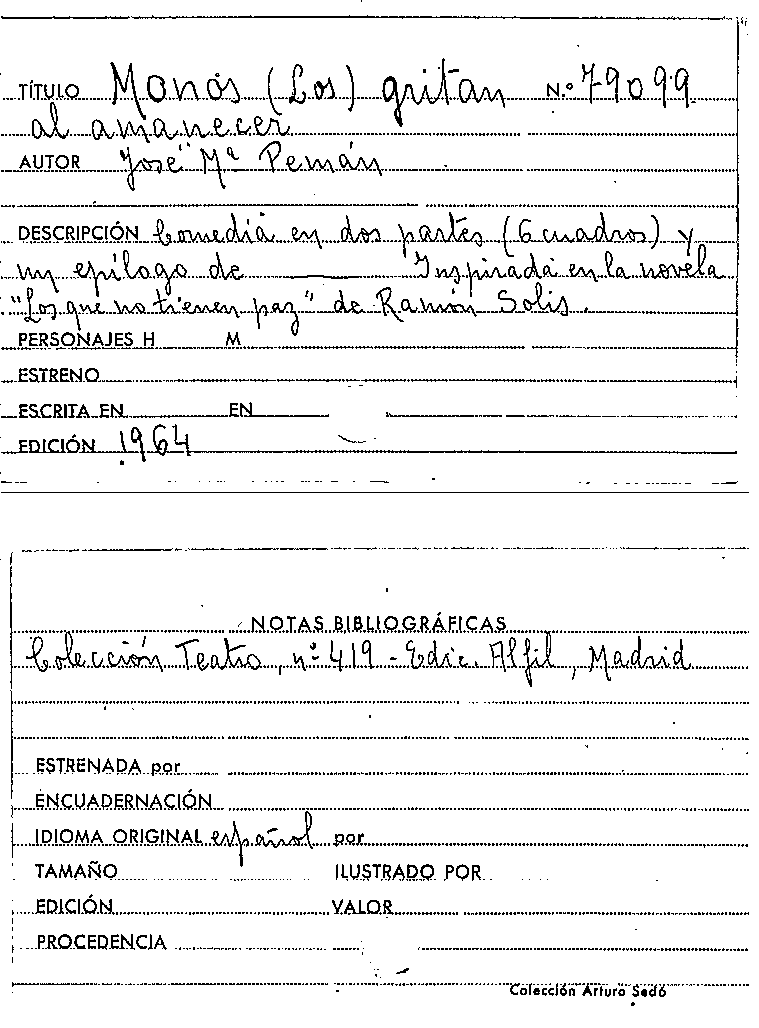 TÍTULO Monos (Los) gritan N.º 79099
al amanecer
AUTOR José Mª Pemán
DESCRIPCIÓN Comedia en dos partes (6 cuadros) y
un epílogo de ______ Inspirada en la novela
"Los que no tienen paz" de Ramón Solis.
PERSONAJES H M
ESTRENO
ESCRITA EN EN
EDICIÓN 1964
NOTAS BIBLIOGRÁFICAS
Colección Teatro, nº 419 - Edic. Alfil, Madrid
ESTRENADA por
ENCUADERNACIÓN
IDIOMA ORIGINAL español por
TAMAÑO ILUSTRADO POR
EDICIÓN VALOR
PROCEDENCIA
Colección Arturo Sedó